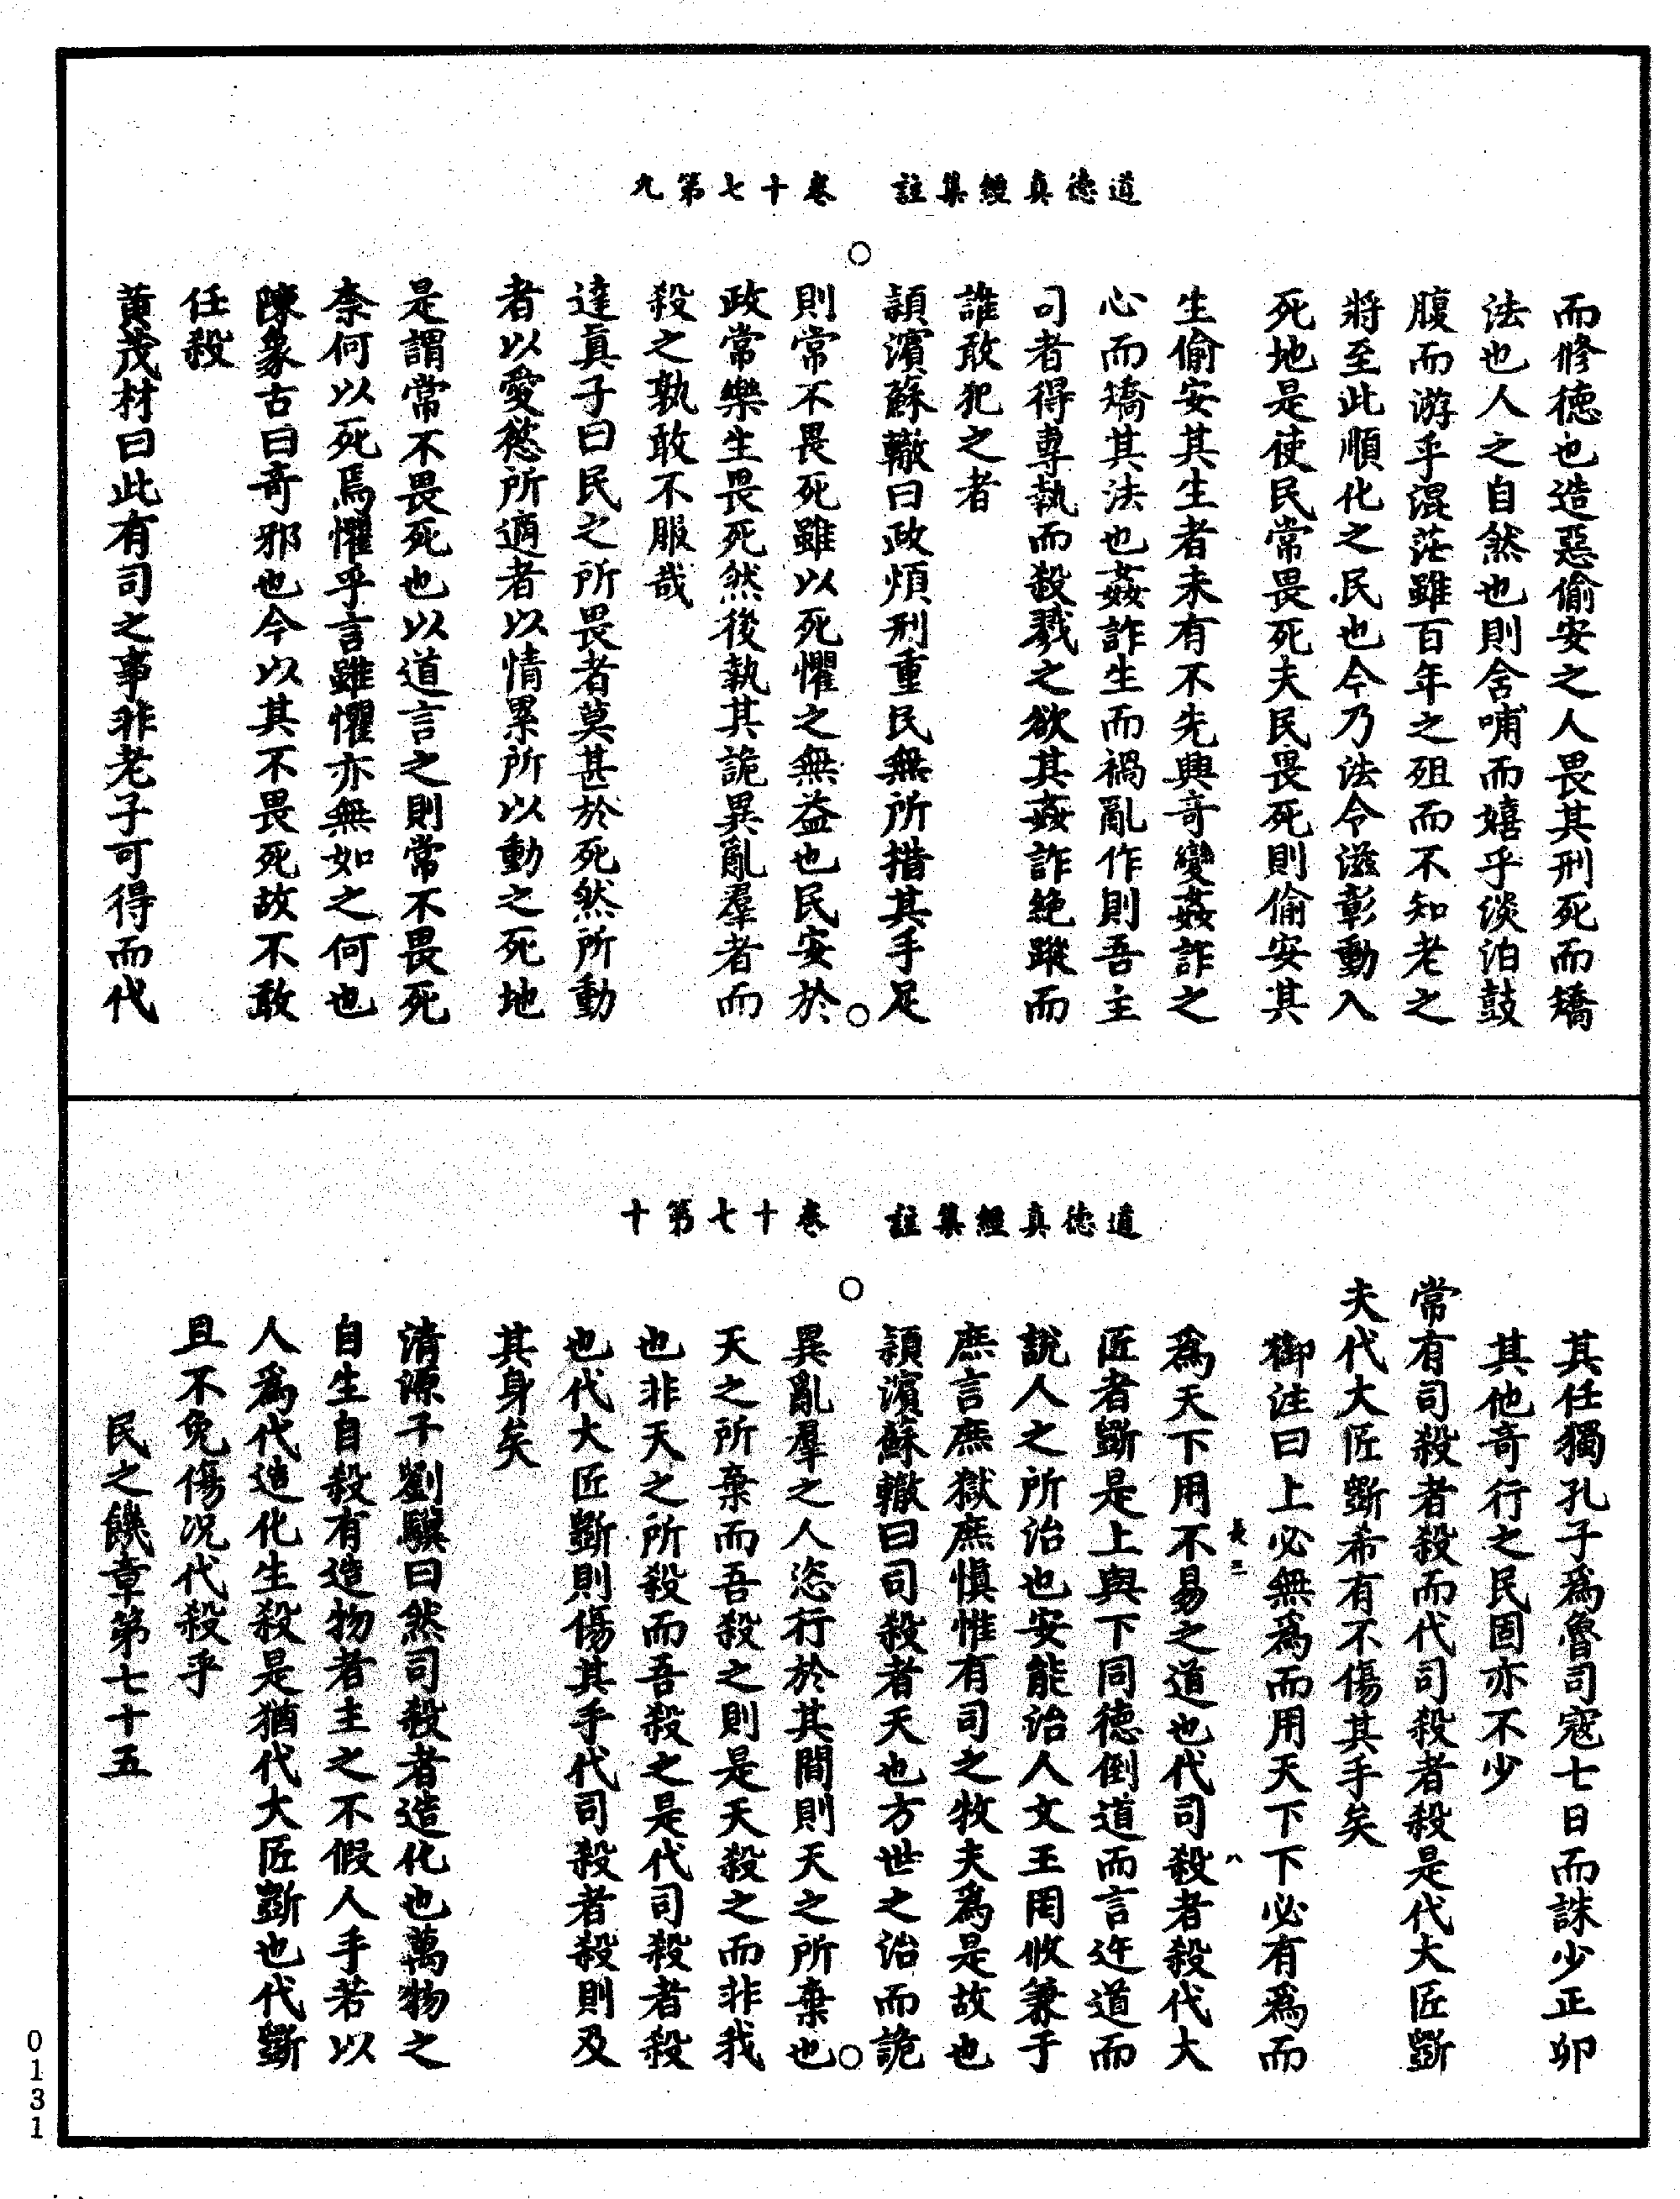 道德真經集註　卷十七第九
而修徳也造惡偷安之人畏其刑死而矯
法也人之自然也則含哺而嬉乎淡泊鼓
腹而游乎混茫雖百年之殂而不知老之
將至此順化之民也今乃法令滋彰動入
死地是使民常畏死夫民畏死則偷安其
生偷安其生者未有不先興奇變姦詐之
心而矯其法也姦詐生而禍亂作則吾主
司者得專執而殺戮之欲其姦詐絶蹤而
誰敢犯之者
頴濱蘇轍曰政煩刑重民無所措其手足
則常不畏死雖以死懼之無益也民安於
政常樂生畏死然後執其詭異亂羣者而
殺之孰敢不服哉
達真子曰民之所畏者莫甚於死然所動
者以愛慾所適者以情累所以動之死地
是謂常不畏死也以道言之則常不畏死
柰何以死焉懼乎言雖懼亦無如之何也
陳象古曰奇邪也今以其不畏死故不敢
任殺
黄茂材曰此有司之事非老子可得而代
道德真經集註　卷十七第十
其任獨孔子爲魯司寇七日而誅少正卯
其他奇行之民固亦不少
常有司殺者殺而代司殺者殺是代大匠斲
夫代大匠斲希有不傷其手矣
御注曰上必無爲而用天下下必有爲而
爲天下用不易之道也代司殺者殺代大
匠者斲是上與下同德倒道而言迕道而
說人之所治也安能治人文王罔攸兼于
庶言庶獄庶慎惟有司之牧夫爲是故也
頴濱蘇轍曰司殺者天也方世之治而詭
異亂羣之人恣行於其間則天之所棄也
天之所棄而吾殺之則是天殺之而非我
也非天之所殺而吾殺之是代司殺者殺
也代大匠斲則傷其手代司殺者殺則及
其身矣
清源子劉驥曰然司殺者造化也萬物之
自生自殺有造物者主之不假人手若以
人爲代造化生殺是猶代大匠斲也代斲
且不免傷况代殺乎
民之饑章第七十五
0131